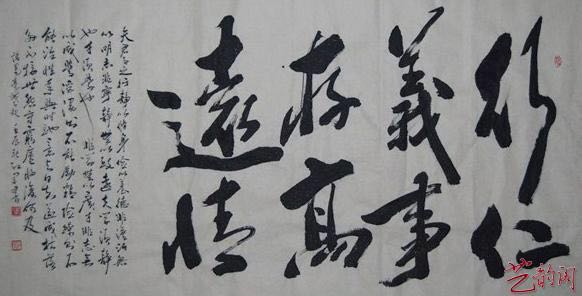 行仁
義事
存高
遠情
夫君子之行静以修身俭以養德非澹泊無
以明志非寧静無以致遠夫学須静
也才須学也非学無以廣才非志無
以成学淫漫則不能励精險躁則不
能治性年與時馳意與日去遂成枯落
多不接世悲守窮廬将復何及
艺韵阁